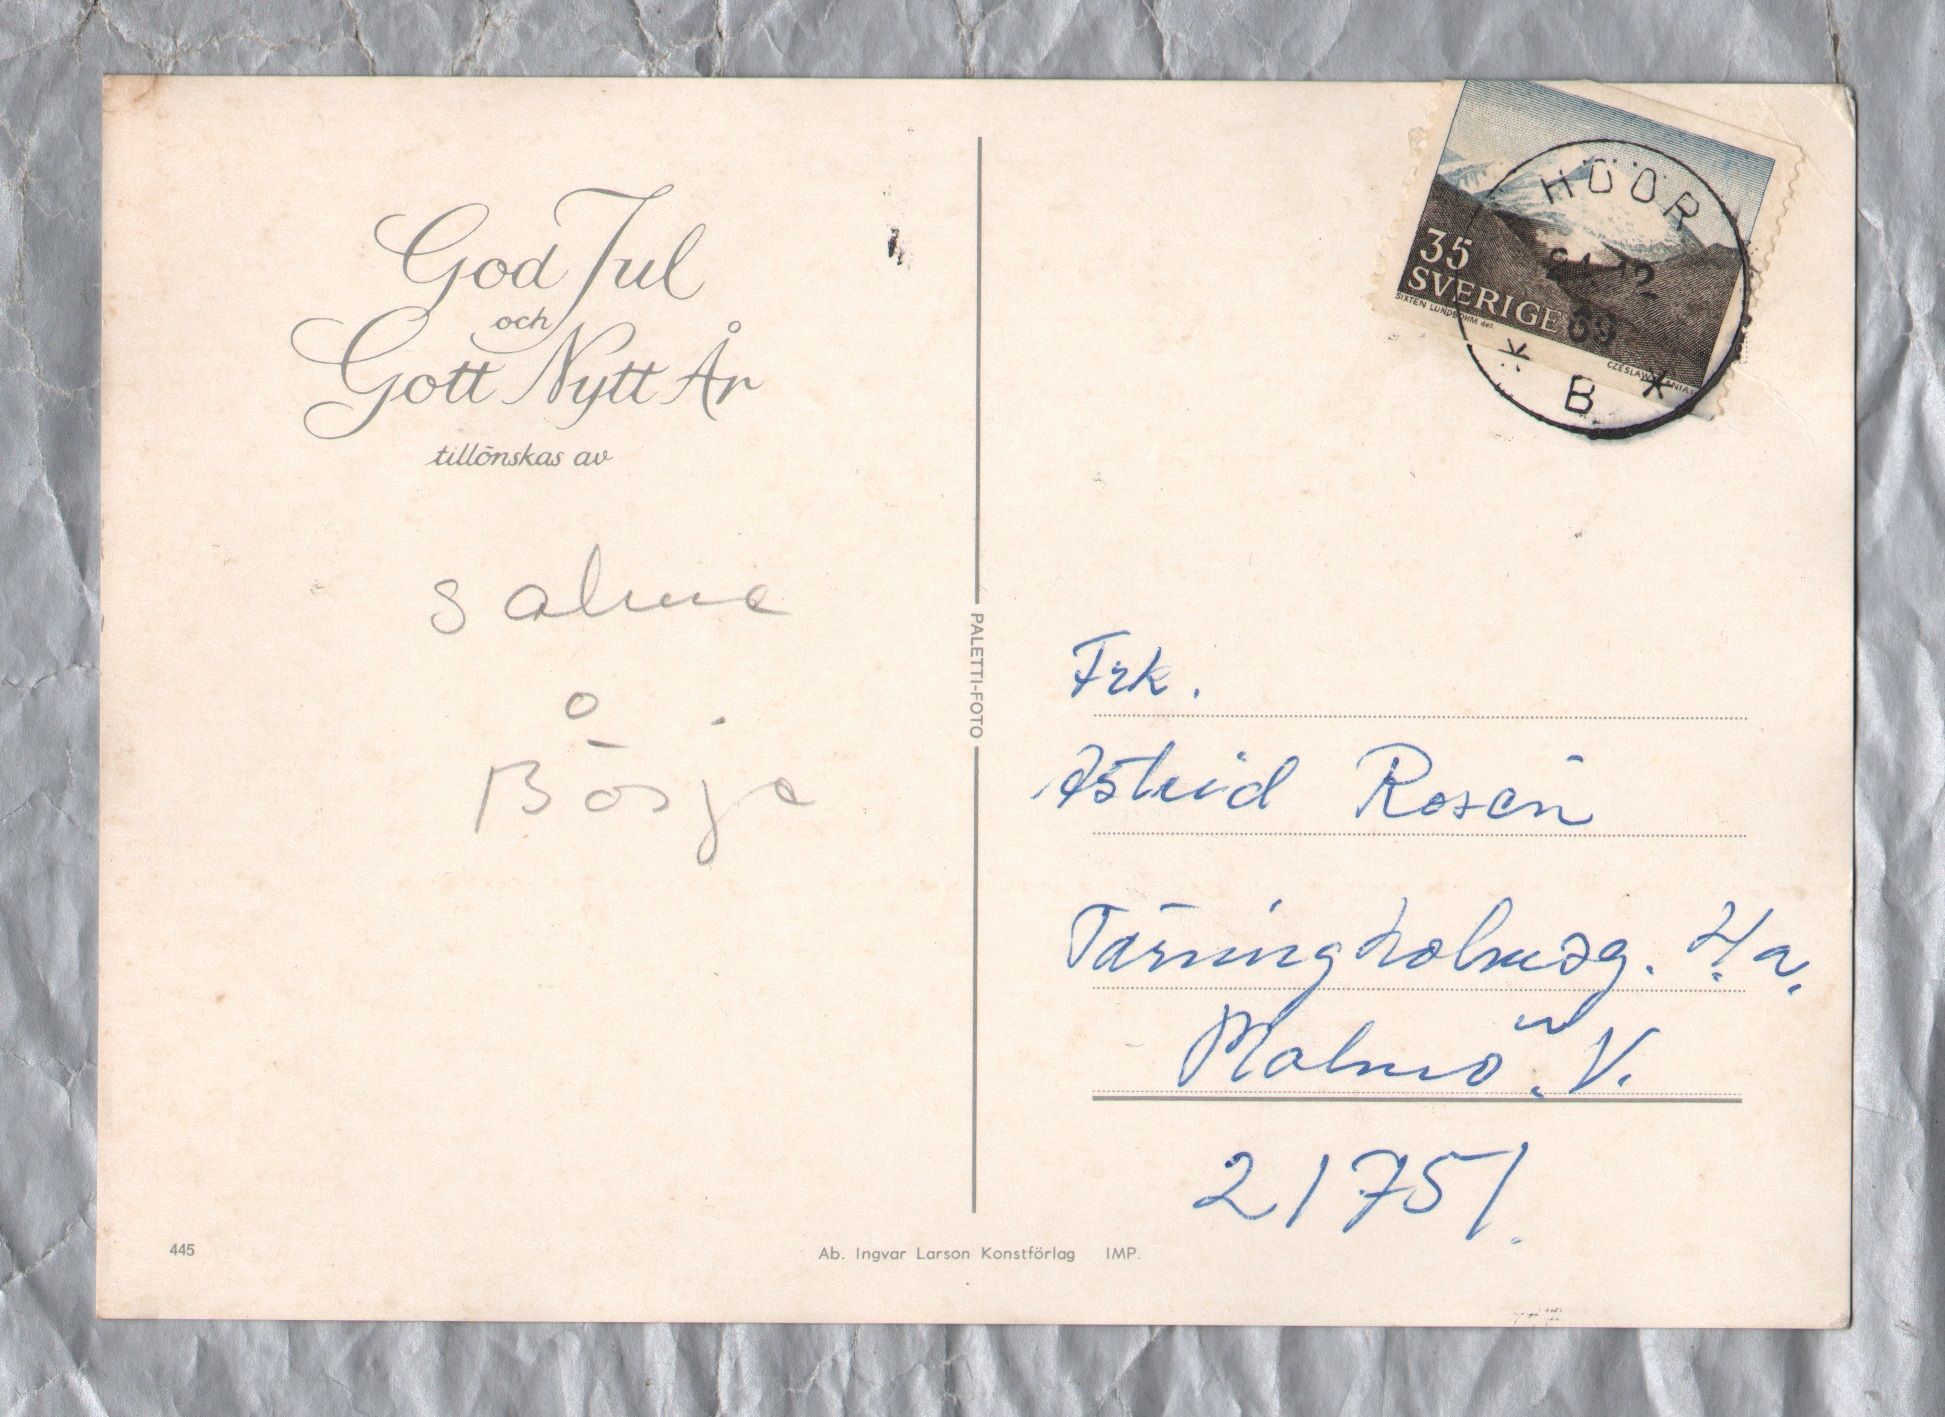 God Jul
och
Gott Nytt År
tillönskas av
Salme
o
Börje
445
PALETTI-FOTO
Ab. Ingvar Larson Konstförlag IMP.
35
SVERIGE
SIXTEN LUNDBOHM del.
CZESLAW SLANIA
HÖÖR
12
69
* B *
Frk.
Astrid Rosén
Tärningholmsg.
Malmö. V.
21751.